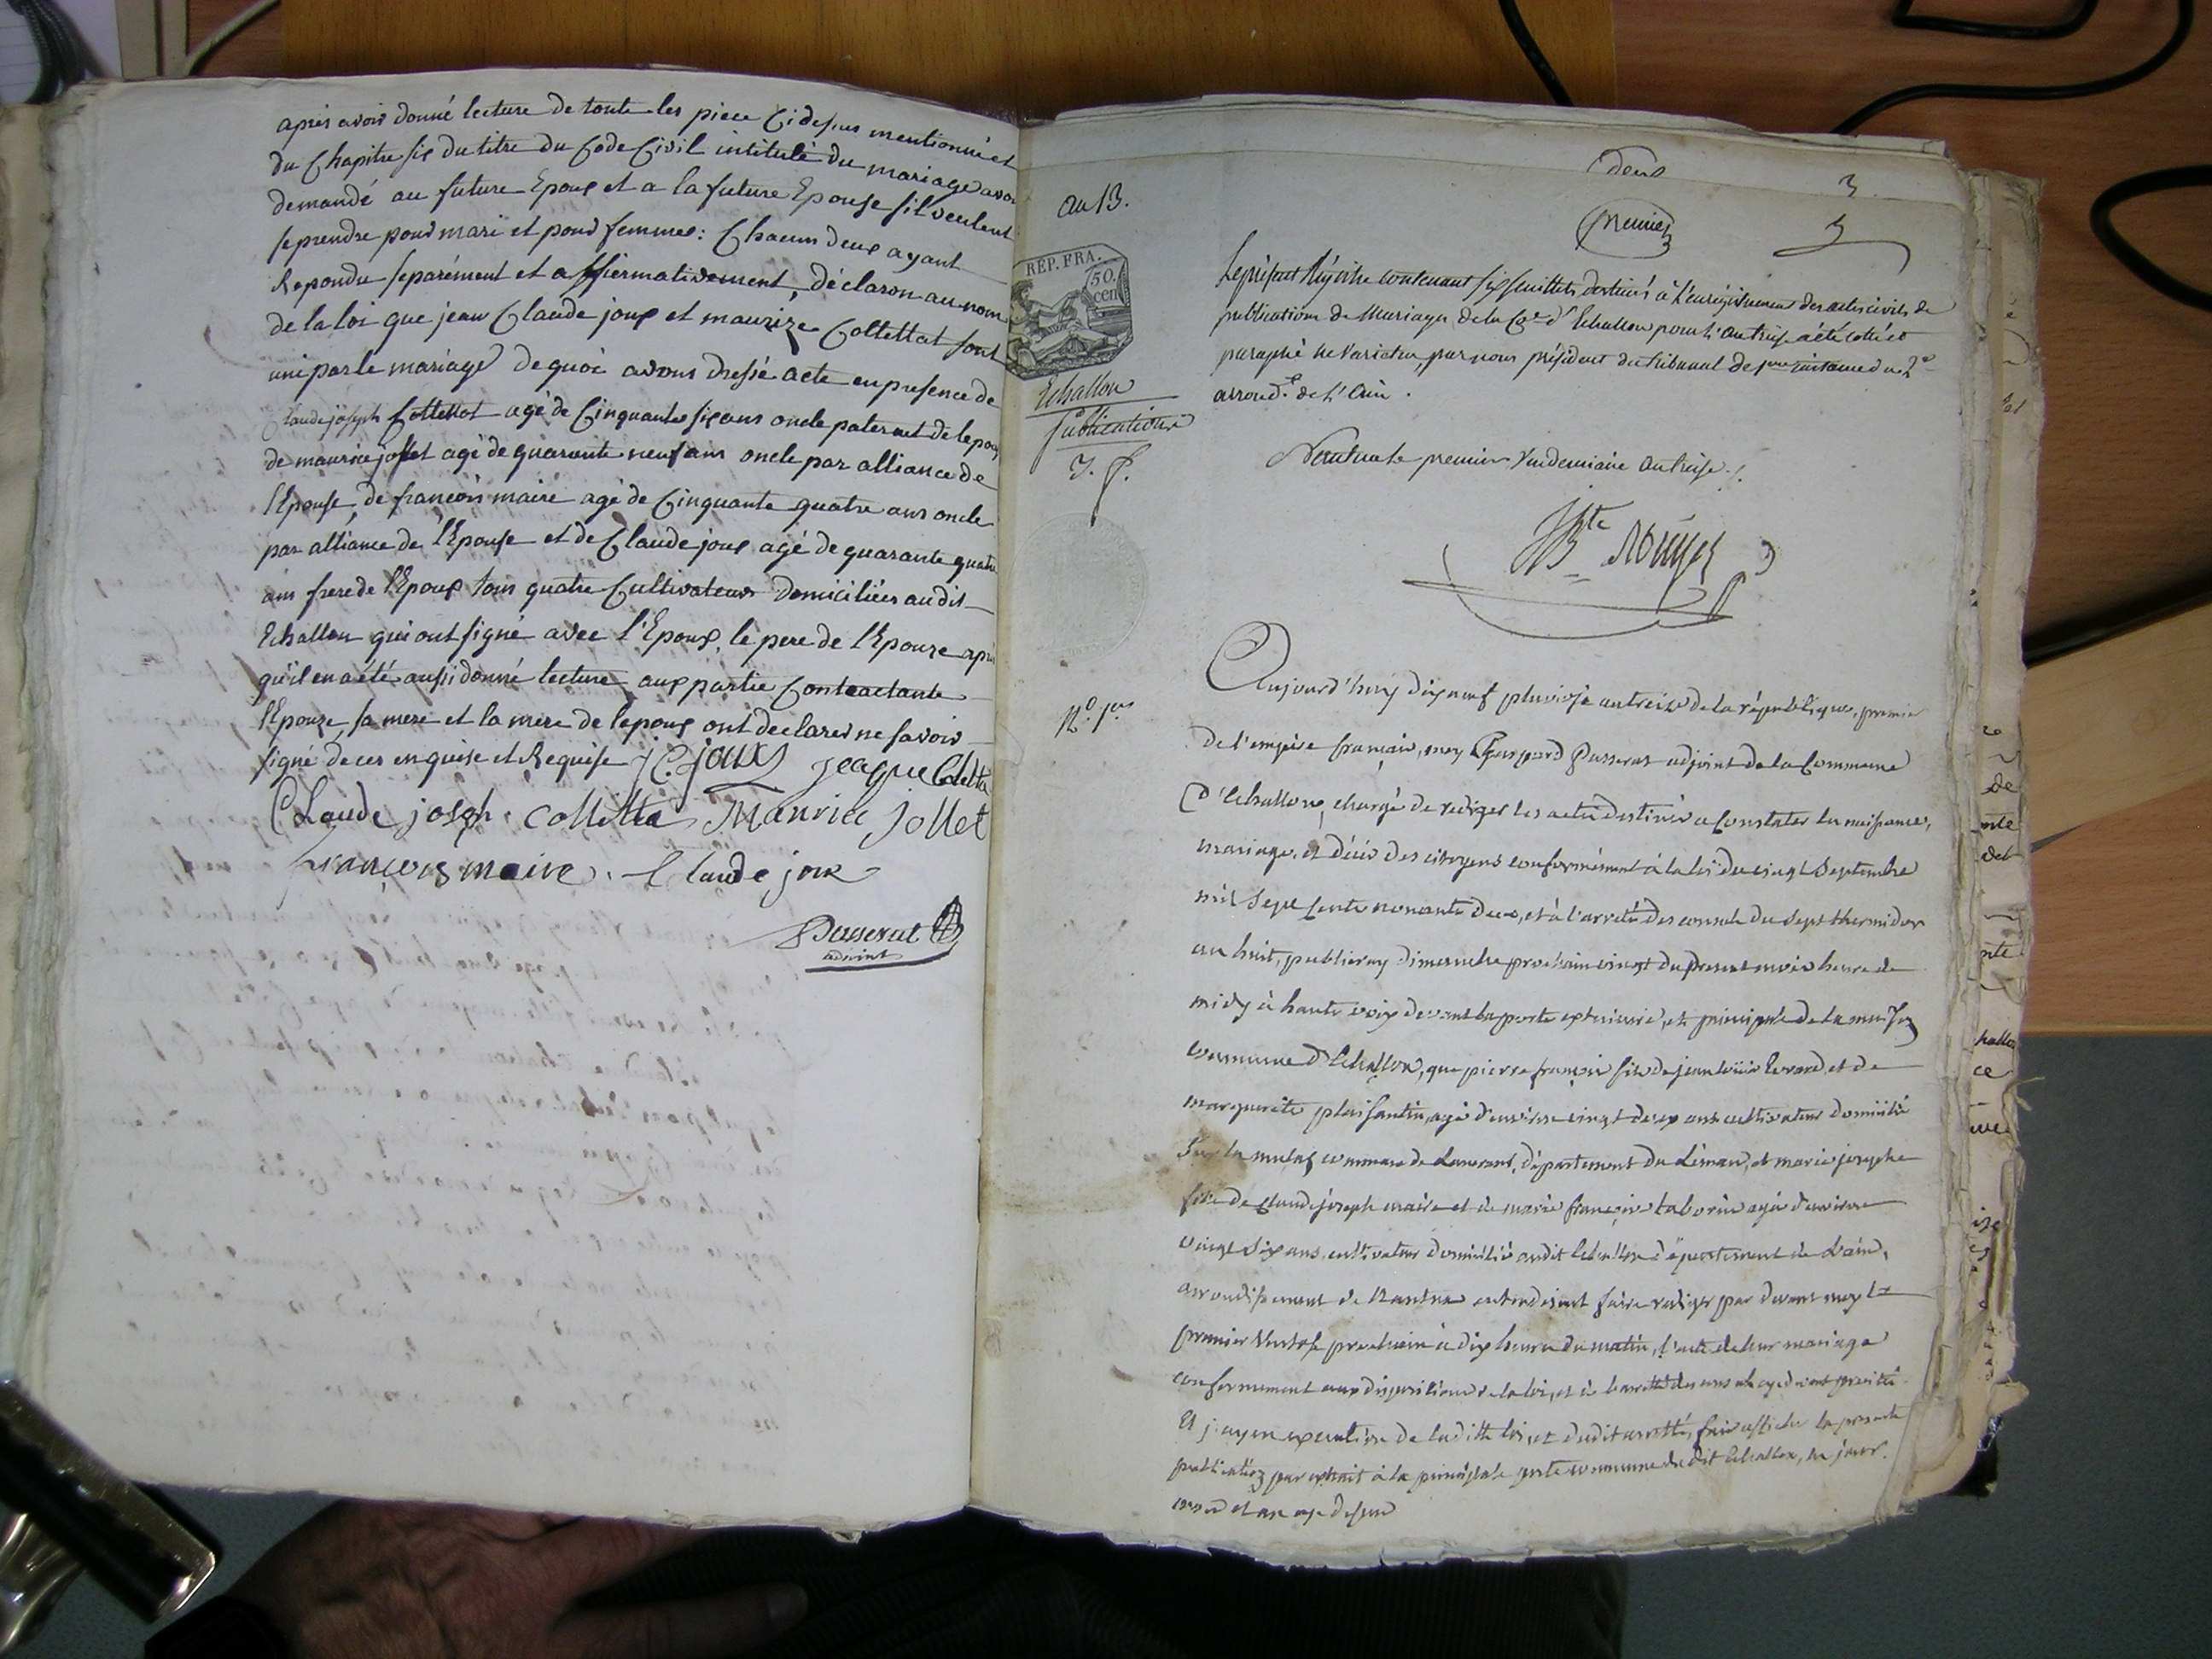 apres avoir donné lecture de toute les piece Cidessus mentionné et
du Chapitre six du titre du Code Civil intitulé du mariage avon
demandé au future Epoux et a la future Epouse sil veulent
se prendre pour mari et pour femme: Chacun deux ayant
Repondu separément et affiermativement, déclaron au nom
de la loi que jean Claude joux et maurize Collettat sont
uni par le mariage de quoi avons dressé acte en presence de
Claude joseph Collettat agé de Cinquante six ans oncle paternel de lepou
de maurice jollet agé de quarante neuf ans oncle par alliance de
l'Epouse, de francois maire agé de Cinquante quatre ans oncle
par alliance de l'Epouse et de Claude joux agé de quarante quatre
ans frere de l'Epoux tous quatre Cultivateurs domiciliés audit
Echallon qui ont signé avec l'Epoux, le pere de l'Epouze apres
qu'il en a été aussi donné lecture aux partie Contractante
l'Epouze, sa mere et la mere de lepoux ont declarer ne savoir
signé de ces enquise et Requise J C joux jeaque Colletta
Claude joseph Collitta Maurice jollet
françois maire. Claude joux
Passerat
adjoint
deux
3.
an 13.
premier
REP. FRA.
50.
cen
Le présent Régistre contenant six feuillets destinés à l'enregistrement des actes civils de
publications de Mariages de la Cne d'Echallon pour l'an treize a été cotté et
paraphé ne varietur, par nous président du tribunal de 1ere instance du 2e
arrond.t de l'Ain.
Echallon
publications
Nantua le premier Vendemiaire an treize./.
N.o 1er
Aujourd'huy dixneuf pluviose an treize de la république, premier
de l'empire français, moy Gaspard Passerat adjoint de la Commune
D'Echallon, chargé de rediger les actes destinés a Constater les naissance,
mariage, et décès des citoyens conformément à la loi du vingt Septembre
mil Sept Cents nonante deux, et à l'arreté des consuls du Sept thermidor
an huit, publieray dimanche prochain vingt du present mois heure de
midy à haute voix devant la porte exterieure, et principale de la maison
Commune D'Echallon, que pierre françois fils de jean louis Evrard, et de
marguerite plaisantin, agé d'environ vingt deux ans cultivateur domicilié
commune de Lancrans, département du Léman, et marie josephe
fille de Claude joseph maire et de marie françoise taborin agée d'environ
vingt Six ans, cultivateur domicilié audit Echallon département de L'ain,
arrondissement de Nantua entendent faire rediger par devant moy le
premier Ventose prochain à dix heure du matin, l'acte de leur mariage
conformement aux dispositions de la loi, et à l'arretté des consuls cy devant precité
Et j'ay en execution de laditte loi, et dudit arretté, fait afficher la presente
publication par extrait à la principale porte commune du dit Echallon, les jour
mois et an que dessus